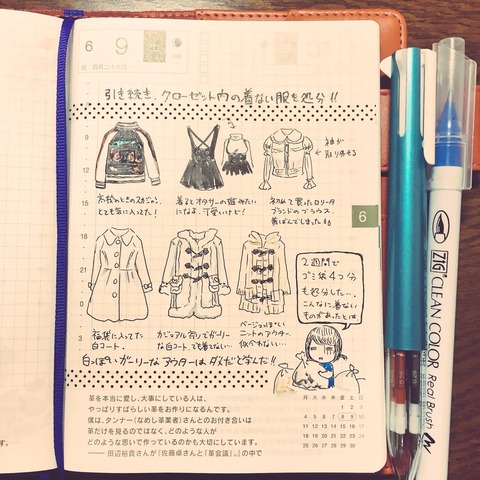 6
9
土
引き続き、クローゼット内の着ない服を処分!!
9
12
15
18
21
0
3
袖が
取り外せる
高校のときのスカジャン。
とても気に入ってた!
着るとオタサーの姫みたい
になるよ、可愛いけど!
初めて買ったロリータ
ブランドのブラウス。
黄ばんでしまった
6
2週間で
ゴミ袋4つ分
も処分した…
こんなに着ない
ものがあったとは
福袋に入ってた
白コート。
カジュアル寄りでガーリー
な白コート。でも着てない…
ベージュっぽい
ニットのアウター。
似合わない…
白っぽいガーリーなアウターはダメだと学んだ!!
革を本当に愛し、大事にしている人は、
やっぱりすばらしい革をお作りになるんです。
僕は、タンナー(なめし革業者)さんとのお付き合いは
革だけを見るのではなく、どのような人が
どのような思いで作っているのかも大切にしています。
―― 田辺裕貴さんが『佐藤卓さんと「革会議」。』の中で
月 火 水 木 金 土 日
1 2 3
4 5 6 7 8 9 10
11 12 13 14 15 16 17
18 19 20 21 22 23 24
25 26 27 28 29 30
す。
ZIG CLEAN COLOR Real Brush